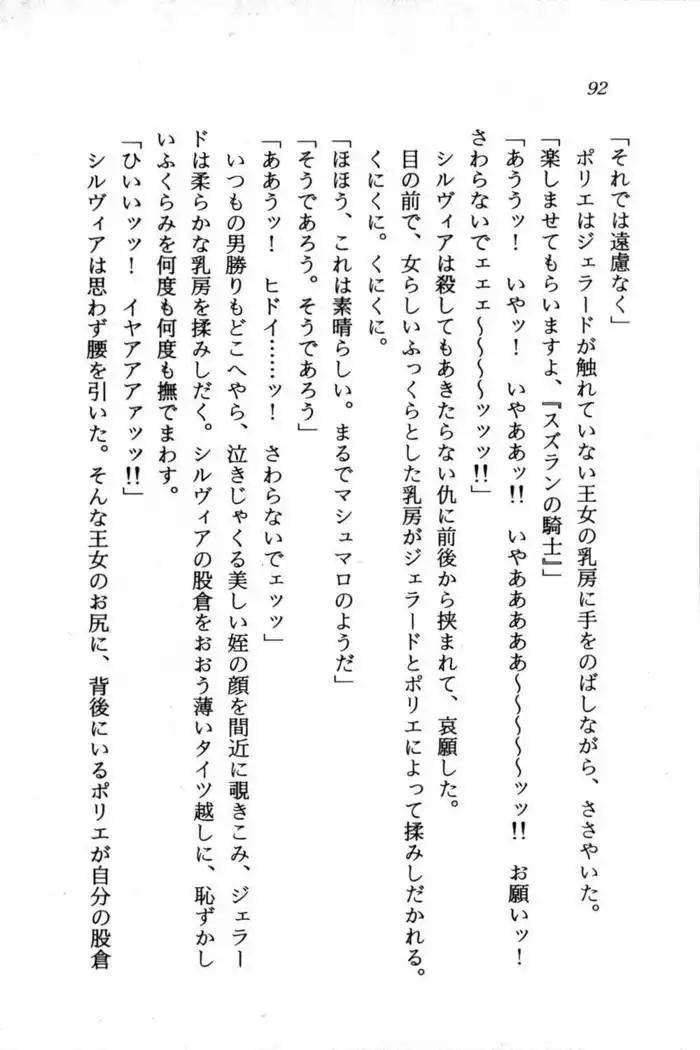 92
「それでは遠慮なく」
ポリエはジェラードが触れていない王女の乳房に手をのばしながら、ささやいた。
「楽しませてもらいますよ、『スズランの騎士』」
「あううッ！　いやッ！　いやああッ!!　いやあああああ～～～～～ッッ!!　お願いッ！
さわらないでェェェ～～～～ッッッ!!」
シルヴィアは殺してもあきたらない仇に前後から挟まれて、哀願した。
目の前で、女らしいふっくらとした乳房がジェラードとポリエによって揉みしだかれる。
くにくに。くにくに。
「ほほう、これは素晴らしい。まるでマシュマロのようだ」
「そうであろう。そうであろう」
「ああうッ！　ヒドイ……ッ！　さわらないでェッッ」
いつもの男勝りもどこへやら、泣きじゃくる美しい姪の顔を間近に覗きこみ、ジェラー
ドは柔らかな乳房を揉みしだく。シルヴィアの股倉をおおう薄いタイツ越しに、恥ずかし
いふくらみを何度も何度も撫でまわす。
「ひいいッッ！　イヤアアアァッッ!!」
シルヴィアは思わず腰を引いた。そんな王女のお尻に、背後にいるポリエが自分の股倉